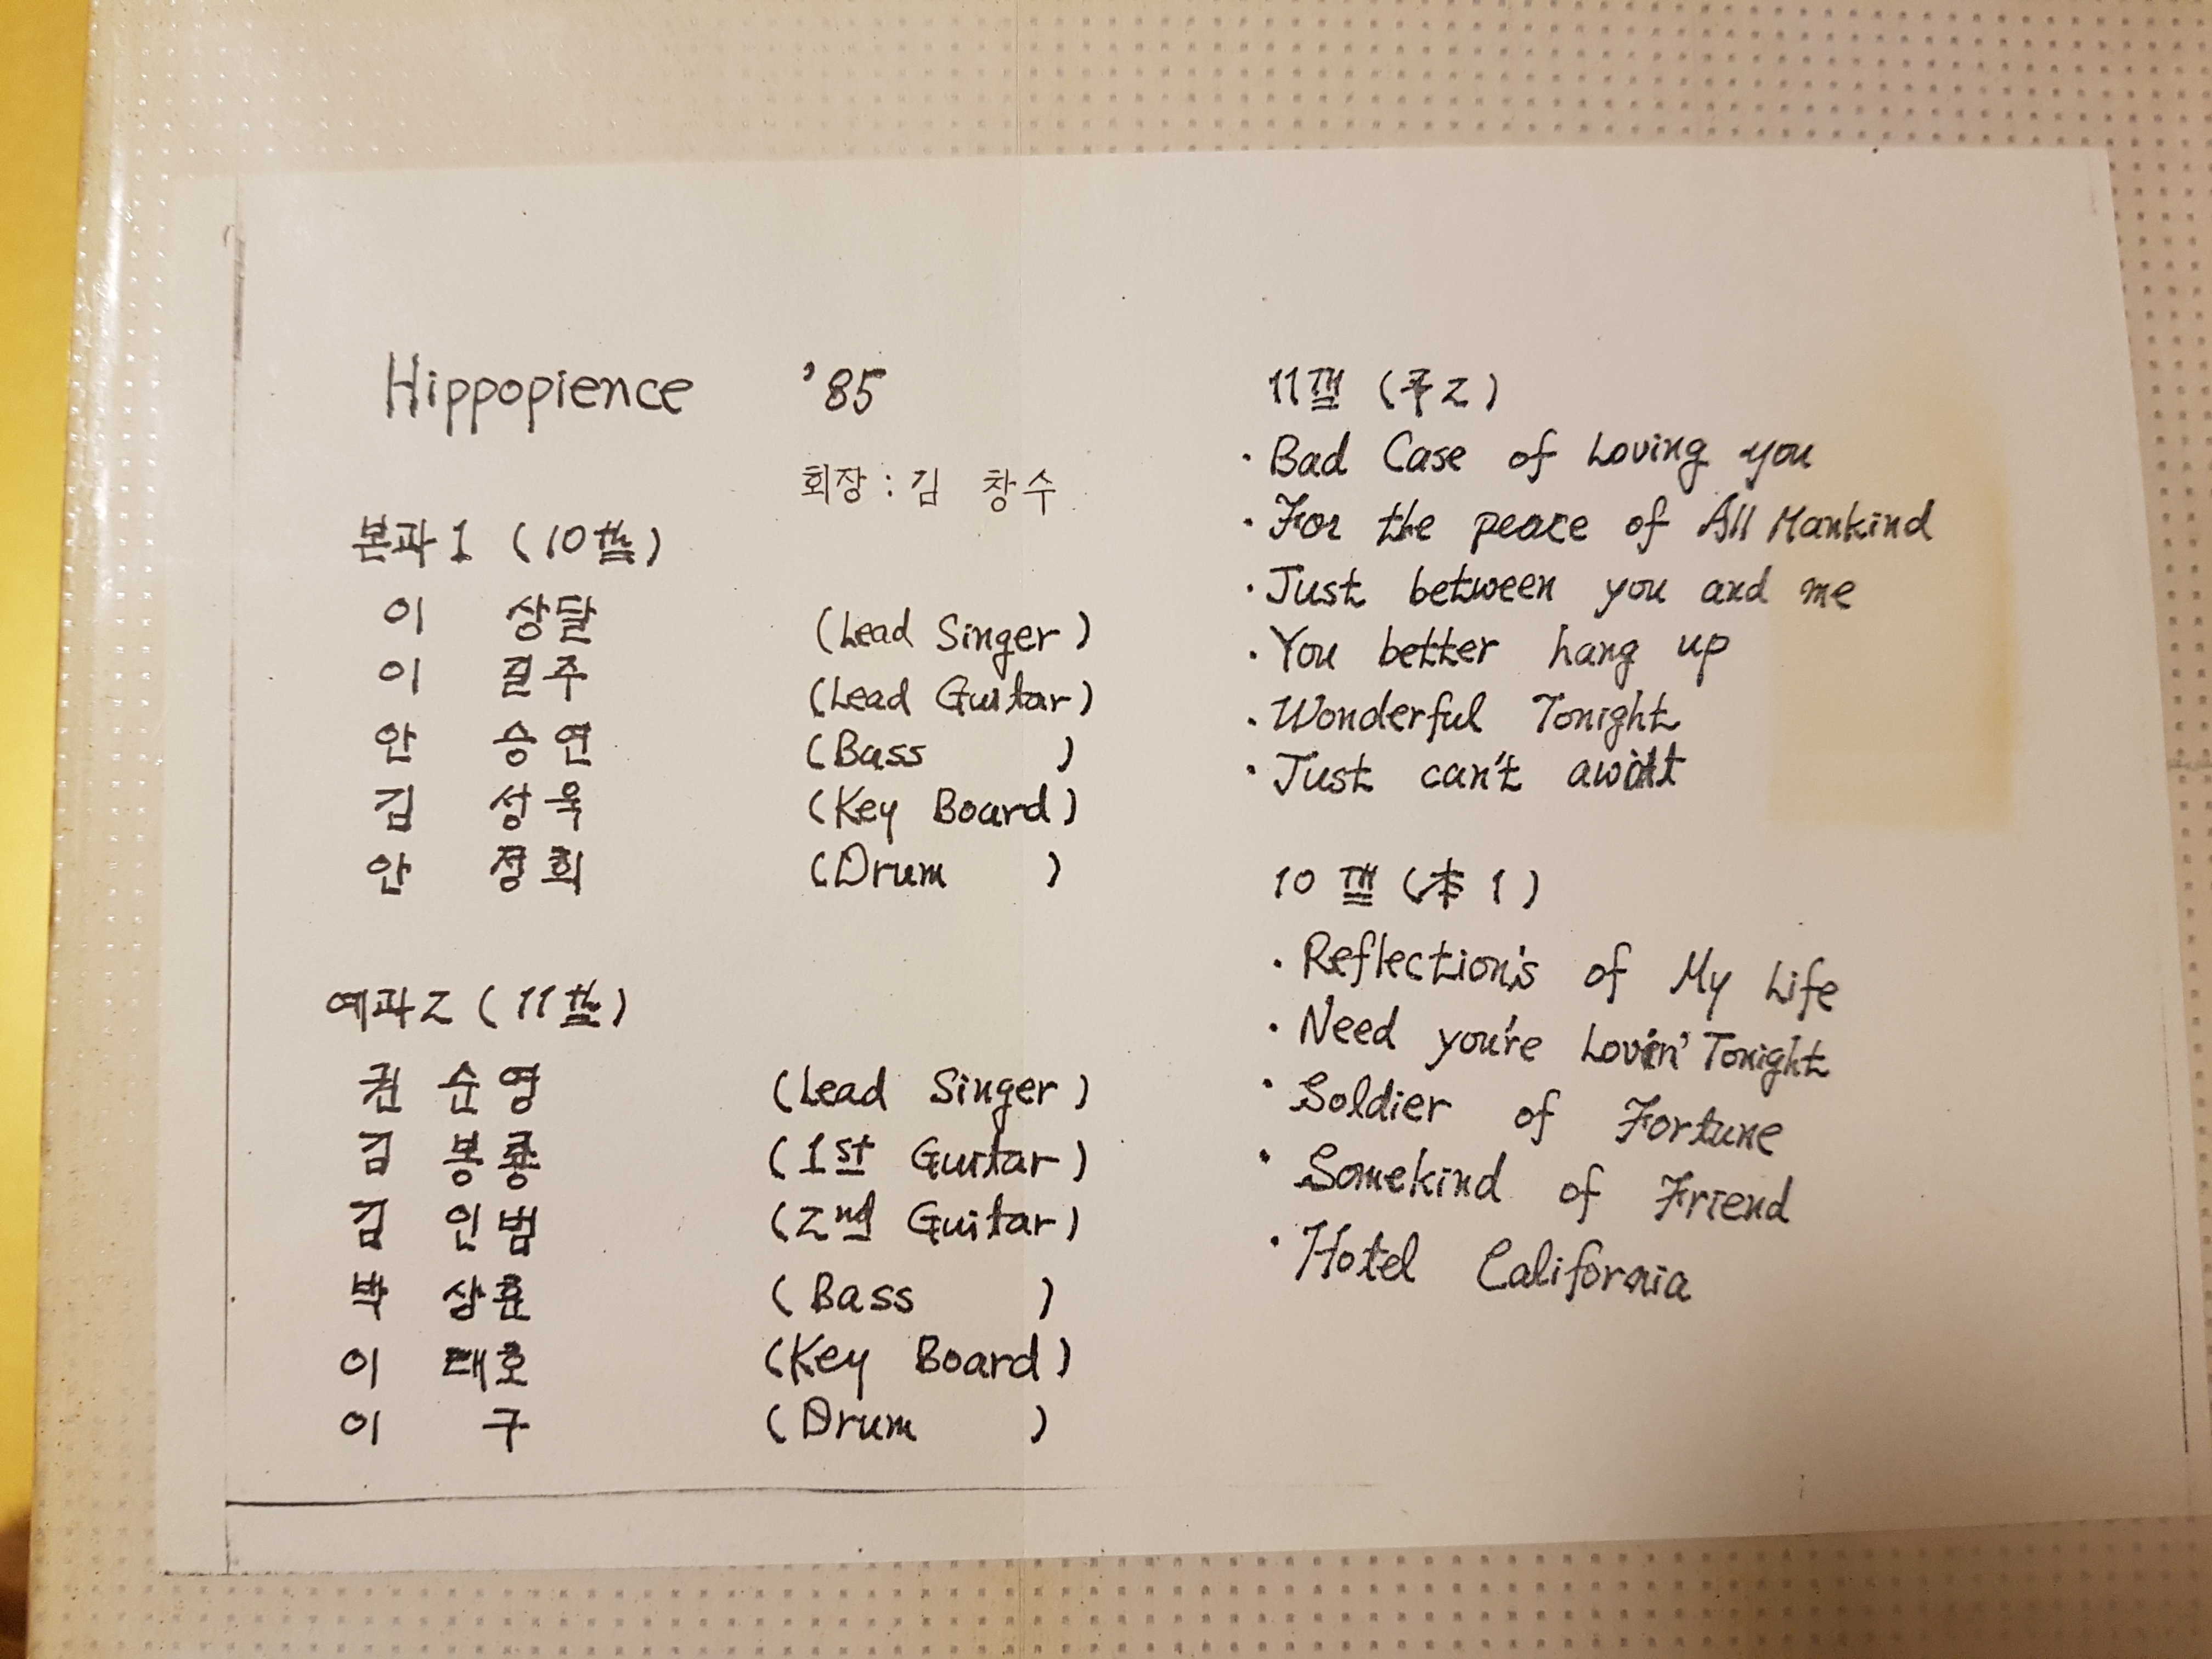 Hippopience '85
회장 : 김 창수
본과 1 (10th)
이 상달 (Lead Singer)
이 길주 (Lead Guitar)
안 승연 (Bass )
김 성욱 (Key Board)
안 정희 (Drum )
예과 2 (11th)
권 순영 (Lead Singer)
김 봉룡 (1st Guitar)
김 인범 (2nd Guitar)
박 상훈 (Bass )
이 태호 (Key Board)
이 구 (Drum )
11th (予2)
· Bad Case of Loving you
· For the peace of All Mankind
· Just between you and me
· You better hang up
· Wonderful Tonight
· Just can't
10th (本1)
· Reflection's of My Life
· Need you're Lovin' Tonight
· Soldier of Fortune
· Somekind of Friend
· Hotel California